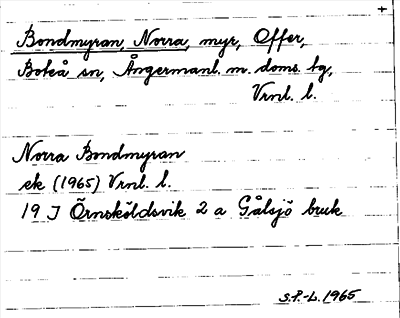 +
Bondmyran, Norra, myr, Offer,
Boteå sn, Ångermanl. m. doms. tg,
Vrnl. l.
Norra Bondmyran
ek (1965) Vrnl. l.
19 J Örnsköldsvik 2 a Gålsjö bruk
S.P.-L. 1965